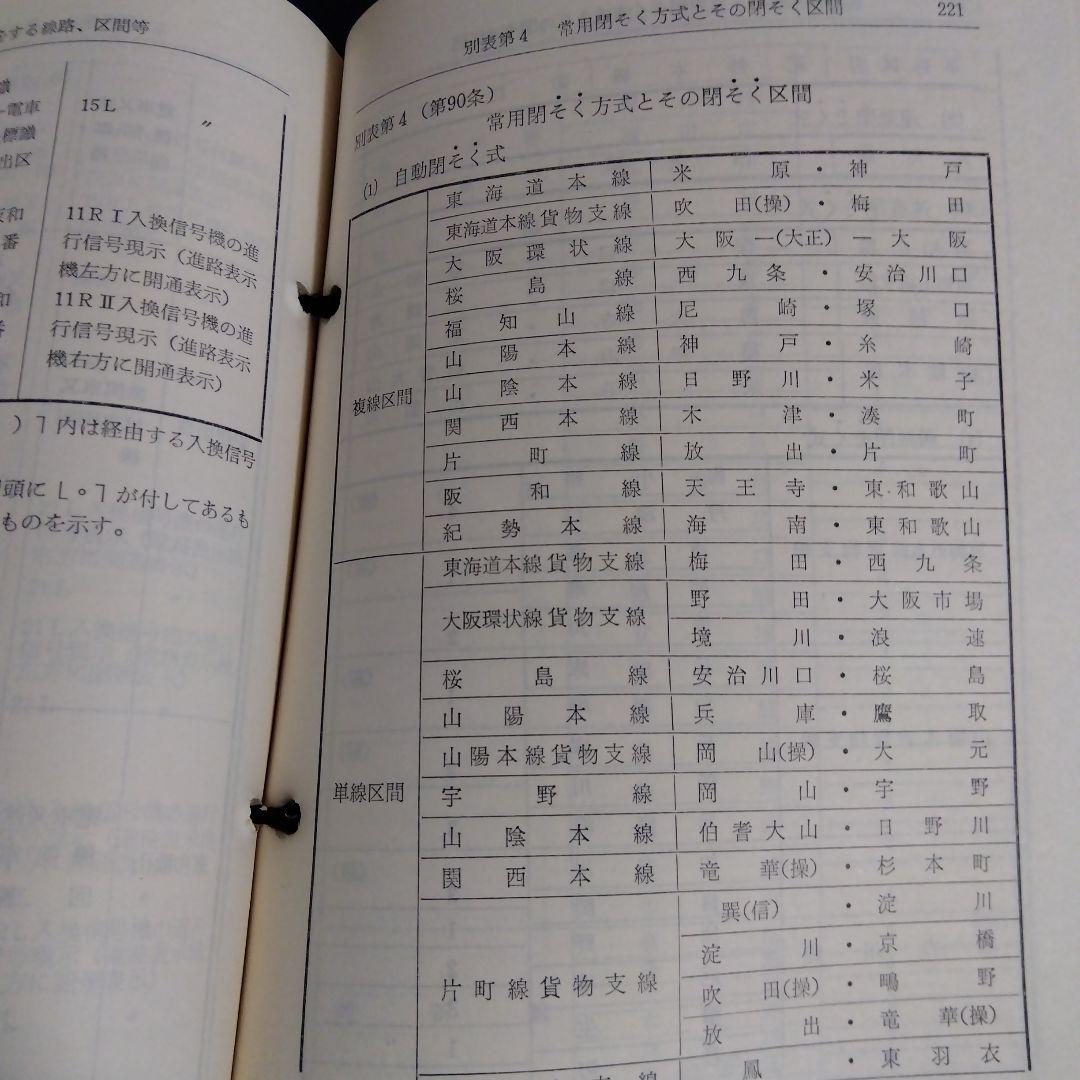 をする線路、区間等
識
電車
標識
出区
和
番
和
番
15L
〃
11RⅠ入換信号機の進
行信号現示（進路表示
機左方に開通表示）
11RⅡ入換信号機の進
行信号現示（進路表示
機右方に開通表示）
）」内は経由する入換信号
頭に「。」が付してあるも
ものを示す。
別表第4　常用閉そく方式とその閉そく区間　221
別表第4（第90条）
常用閉そく方式とその閉そく区間
(1)　自動閉そく式
複線区間
東海道本線　米原・神戸
東海道本線貨物支線　吹田(操)・梅田
大阪環状線　大阪―(大正)―大阪
桜島線　西九条・安治川口
福知山線　尼崎・塚口
山陽本線　神戸・糸崎
山陰本線　日野川・米子
関西本線　木津・湊町
片町線　放出・片町
阪和線　天王寺・東和歌山
紀勢本線　海南・東和歌山
単線区間
東海道本線貨物支線　梅田・西九条
大阪環状線貨物支線　野田・大阪市場
境川・浪速
桜島線　安治川口・桜島
山陽本線　兵庫・鷹取
山陽本線貨物支線　岡山(操)・大元
宇野線　岡山・宇野
山陰本線　伯耆大山・日野川
関西本線　竜華(操)・杉本町
片町線貨物支線　巽(信)・淀川
淀川・京橋
吹田(操)・鴫野
放出・竜華(操)
鳳・東羽衣